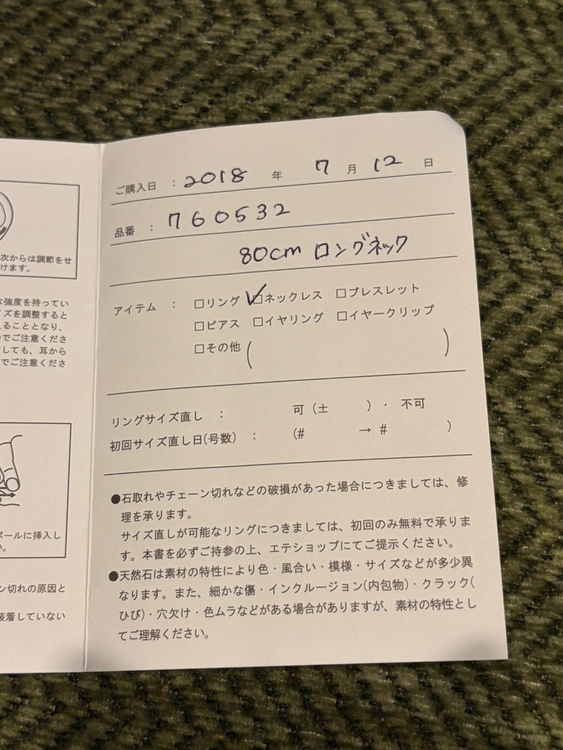 次からは調節をせ
けます。
な強度を持ってい
イズを調整すると
れることとなり、
でご注意くださ
しても、耳から
でご注意くださ
ボールに挿入し
い。
ン切れの原因と
装着していない
ご購入日 : 2018 年 7 月 12 日
品番 : 760532
80cm ロングネック
アイテム : □リング ☑ネックレス □ブレスレット
□ピアス □イヤリング □イヤークリップ
□その他 ( )
リングサイズ直し : 可(± )・ 不可
初回サイズ直し日(号数) : (# → # )
●石取れやチェーン切れなどの破損があった場合につきましては、修
理を承ります。
サイズ直しが可能なリングにつきましては、初回のみ無料で承りま
す。本書を必ずご持参の上、エテショップにてご提示ください。
●天然石は素材の特性により色・風合い・模様・サイズなどが多少異
なります。また、細かな傷・インクルージョン(内包物)・クラック(
ひび)・穴欠け・色ムラなどがある場合がありますが、素材の特性とし
てご理解ください。